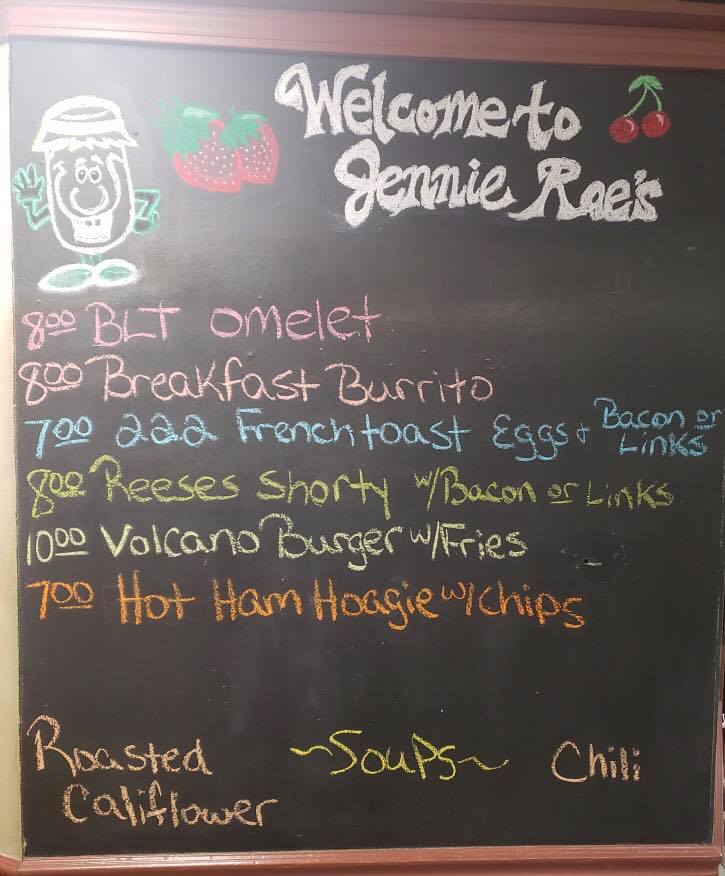 Welcome to
Jennie Rae's
8⁰⁰ BLT omelet
8⁰⁰ Breakfast Burrito
7⁰⁰ 222 French toast Eggs + Bacon or Links
8⁰⁰ Reeses Shorty w/Bacon or Links
10⁰⁰ Volcano Burger w/Fries
7⁰⁰ Hot Ham Hoagie w/chips
~Soups~
Roasted
Califlower
Chili